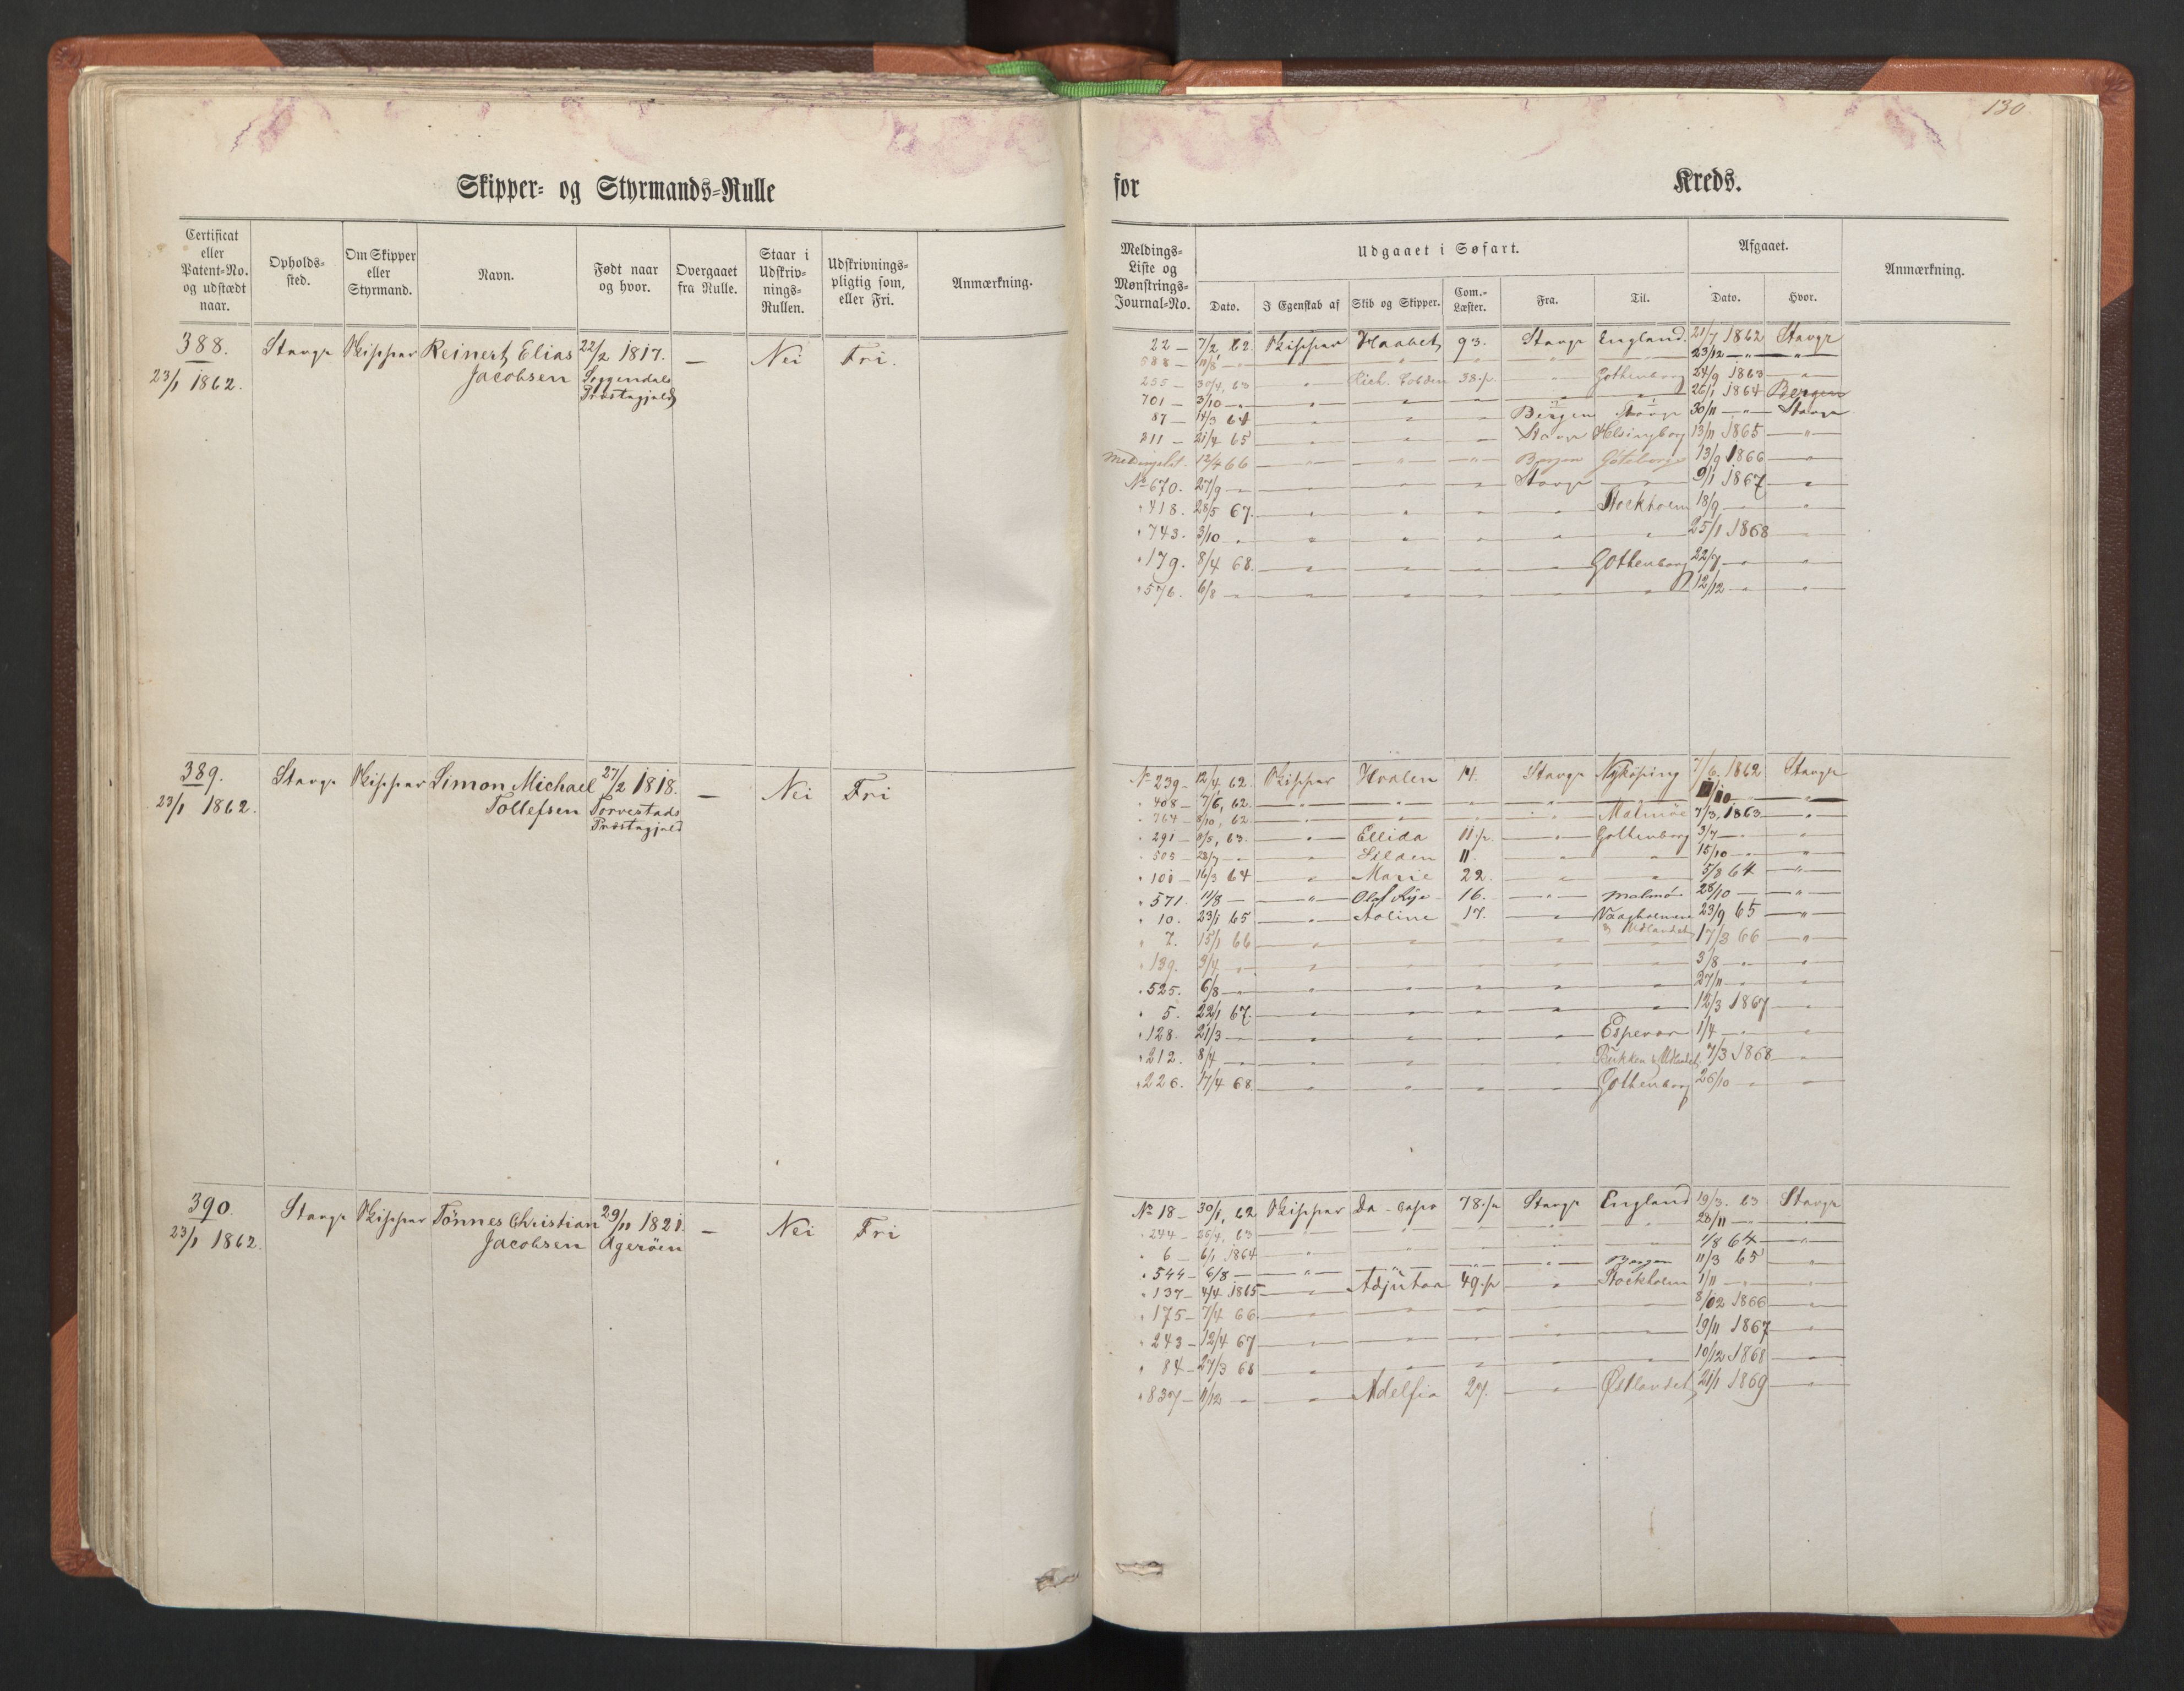 130
Skipper- og Styrmands-Rulle for Kreds.
Certificat eller Patent-No. og udstædt naar. Opholds-sted. Om Skipper eller Styrmand. Navn. Født naar og hvor. Overgaaet fra Rulle. Staar i Udskriv-nings-Rullen. Udskrivnings-pligtig som, eller Fri. Anmærkning.
Meldings-Liste og Mønstrings-Journal-No. Udgaaet i Søfart. Afgaaet. Anmærkning.
Dato. I Egenskab af Skib og Skipper. Com.-Læster. Fra. Til. Dato. Hvor.
388. Stavgr Skipper Reinert Elias 22/2 1817. — Nei Fri.
23/1 1862. Jacobsen Soggendals
Præstegjeld
22 — 7/2 62. Skipper Haabet 93. Stavgr England. 21/7 1862 Stavgr
588 — 11/8 — " — — — — — 23/12 — " — "
255 — 30/4, 63 " Rich. Cobden 38.p. — " Gothenborg 24/9 1863 — "
701 — 3/10 — " — " — " — " — " — " 26/1 1864 Bergen
87 — 14/3 64 — " — " — " Bergen Stavgr 30/11 — " — Stavgr
211 — 21/4 65 — " — " — " Stavgr Helsingborg 13/11 1865 — "
Meldingslist. 12/4 66 — " — " — " Bergen Göteborg 13/9 1866 — "
No 670. 27/9 — " — " — " — " Stavgr — " 9/1 1867 — "
" 418. 28/5 67. — " — " — " — " Stockholm 18/9 — " — "
" 743. 3/10 — " — " — " — " — " — " 25/1 1868 — "
" 179. 8/4 68. — " — " — " — " Gothenborg 22/7 — " — "
" 576. 6/8 — " — " — " — " — " — " 12/12 — " — "
389. Stavgr Skipper Simon Michael 27/2 1818. — Nei Fri
23/1 1862. Tollefsen Torvestads
Præstegjeld
No 239 — 12/4, 62. Skipper Hvalen 14. Stavgr Nyköping 7/6. 1862 Stavgr
" 408 — 7/6, 62. — " — " — " — " — " /10 — " — "
" 764 — 8/10, 62 — " — " — " — " Malmöe 7/3, 1863 — "
" 291 — 8/5, 63. — " Ellida 11.p. — " Gothenborg 3/7 — " — "
" 505 — 28/7 — " — " Silden 11. — " — " 15/10 — " — "
" 101 — 16/3 64 — " Marie 22. — " — " 5/8 64 — "
" 571. 11/8 — — " Olaf Rye 16. — " Malmö 28/10 — — "
" 10. 23/1 65 — " Aoline 17. — " Vaagholmene 23/9 65 — "
& Udlandet
" 7. 15/1 66 — " — " — " — " — " 17/3 66 — "
" 139. 3/4 — " — " — " — " — " — " 3/8 — " — "
" 525. 6/8 — " — " — " — " — " — " 27/11 — " — "
" 5. 22/1 67. — " — " — " — " — " 12/3 1867 — "
" 128. 21/3 — — " — " — " — " Espevær 1/4 — " — "
" 212. 8/4 — " — " — " — " — " Bukken & Udlandet 7/3 1868 — "
" 226. 17/4 68. — " — " — " — " Gothenborg 26/10 — " — "
390. Stavgr Skipper Tönnes Christian 29/11 1821. — Nei Fri
23/1 1862. Jacobsen Ageröen
No 18 — 30/1, 62 Skipper Da-capo 78.p Stavgr England 19/3. 63 Stavgr
" 244 — 25/4, 63 — " — " — " — " — " 28/11 — " — "
" 6 — 6/1 1864 — " — " — " — " — " 1/8 64 — "
" 544 — 6/8 — — " — " — " — " Bergen 11/3 65 — "
" 137 — 4/4 1865 — " Adjutor 49.p — " Stockholm 1/11 — " — "
" 175 — 7/4 66. — " — " — " — " — " 8/12 1866 — "
" 243 — 12/4 67 — " — " — " — " — " 19/11 1867 — "
" 84 — 27/3 68 — " — " — " — " — " 10/12 1868 — "
" 837 — 11/12 — " — " Adelfia 27. — " Østlandet 21/1 1869 — "